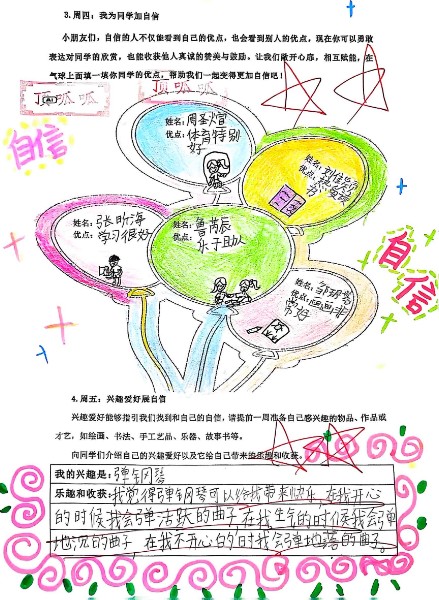 3. 周四：我为同学加自信
小朋友们，自信的人不仅能看到自己的优点，也会看到别人的优点，现在你可以勇敢
表达对同学的欣赏，也能收获他人真诚的赞美与鼓励。让我们敞开心扉，相互赋能，在
气球上面填一填你同学的优点，帮助我们一起变得更加自信吧！
顶呱呱
顶呱呱
自信
姓名：周圣煊
优点：体育特别
好
姓名：刘佳
优点：爱读
书
姓名：张昕海
优点：学习很好
姓名：鲁芮辰
优点：
乐于助人
自信
姓名：邹玥
优点：画画非
常好
4. 周五：兴趣爱好展自信
兴趣爱好能够指引我们找到和自己的自信，请提前一周准备自己感兴趣的物品、作品或
才艺，如绘画、书法、手工艺品、乐器、故事书等。
向同学们介绍自己的兴趣爱好以及它给自己带来的乐趣和收获。
我的兴趣是：弹钢琴
乐趣和收获：我觉得弹钢琴可以给我带来快乐，在我开心
的时候我会弹活跃的曲子，在我生气的时候我会弹
地沉的曲子，在我不开心的时我会弹地落的曲子。